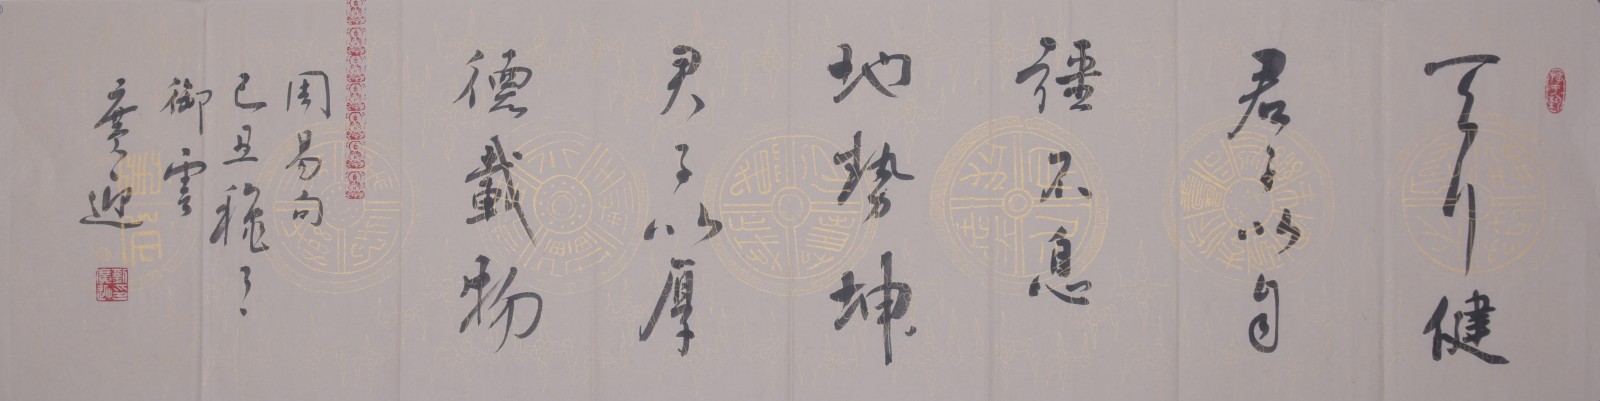 天行健
君子以自
彊不息
地勢坤
君子以厚
德載物
周易句
己丑秋
御雲
迎